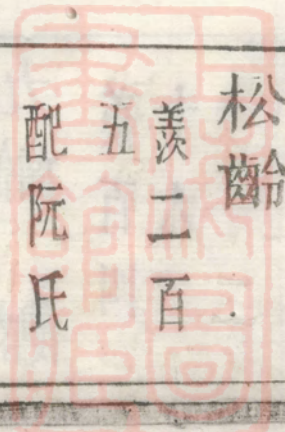 松齡
羨二百
五
配阮氏